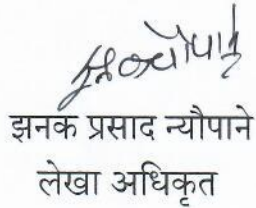 झनक प्रसाद न्यौपाने
लेखा अधिकृत